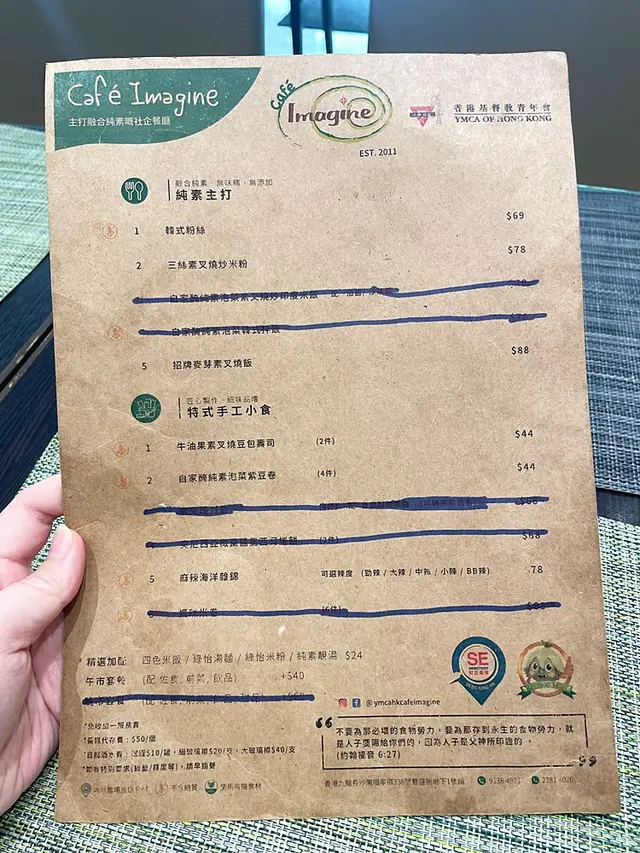 Café Imagine
主打融合純素嘅社企餐廳
Café
Imagine
EST. 2011
香港基督教青年會
YMCA OF HONG KONG
融合純素．無味精．無添加
純素主打
1 韓式粉絲 $69
2 三絲素叉燒炒米粉 $78
自家醃純素泡菜素叉燒炒印度米飯
自家醃純素泡菜韓式拌飯
5 招牌麥芽素叉燒飯 $88
匠心製作．細味品嚐
特式手工小食
1 牛油果素叉燒豆包壽司 (2件) $44
2 自家醃純素泡菜紫豆卷 (4件) $44
$68
(2件) $68
5 麻辣海洋雜錦 可選辣度 (勁辣 / 大辣 / 中辣 / 小辣 / BB辣) 78
精選加配 四色米飯 / 綠怡湯麵 / 綠怡米粉 / 純素靚湯 $24
午市套餐 (配 佐食, 前菜, 飲品) +$40
*免收加一服務費
*蛋糕代存費：$50/個
大玻璃樽$40/支
SE
DIRECTORY
@ymcahkcafeimagine
不要為那必壞的食物勞力，要為那存到永生的食物勞力，就
是人子要賜給你們的，因為人子是父神所印證的。
(約翰福音 6:27)
不含麩質
香港九龍長沙灣
9138 4921
2781 4020